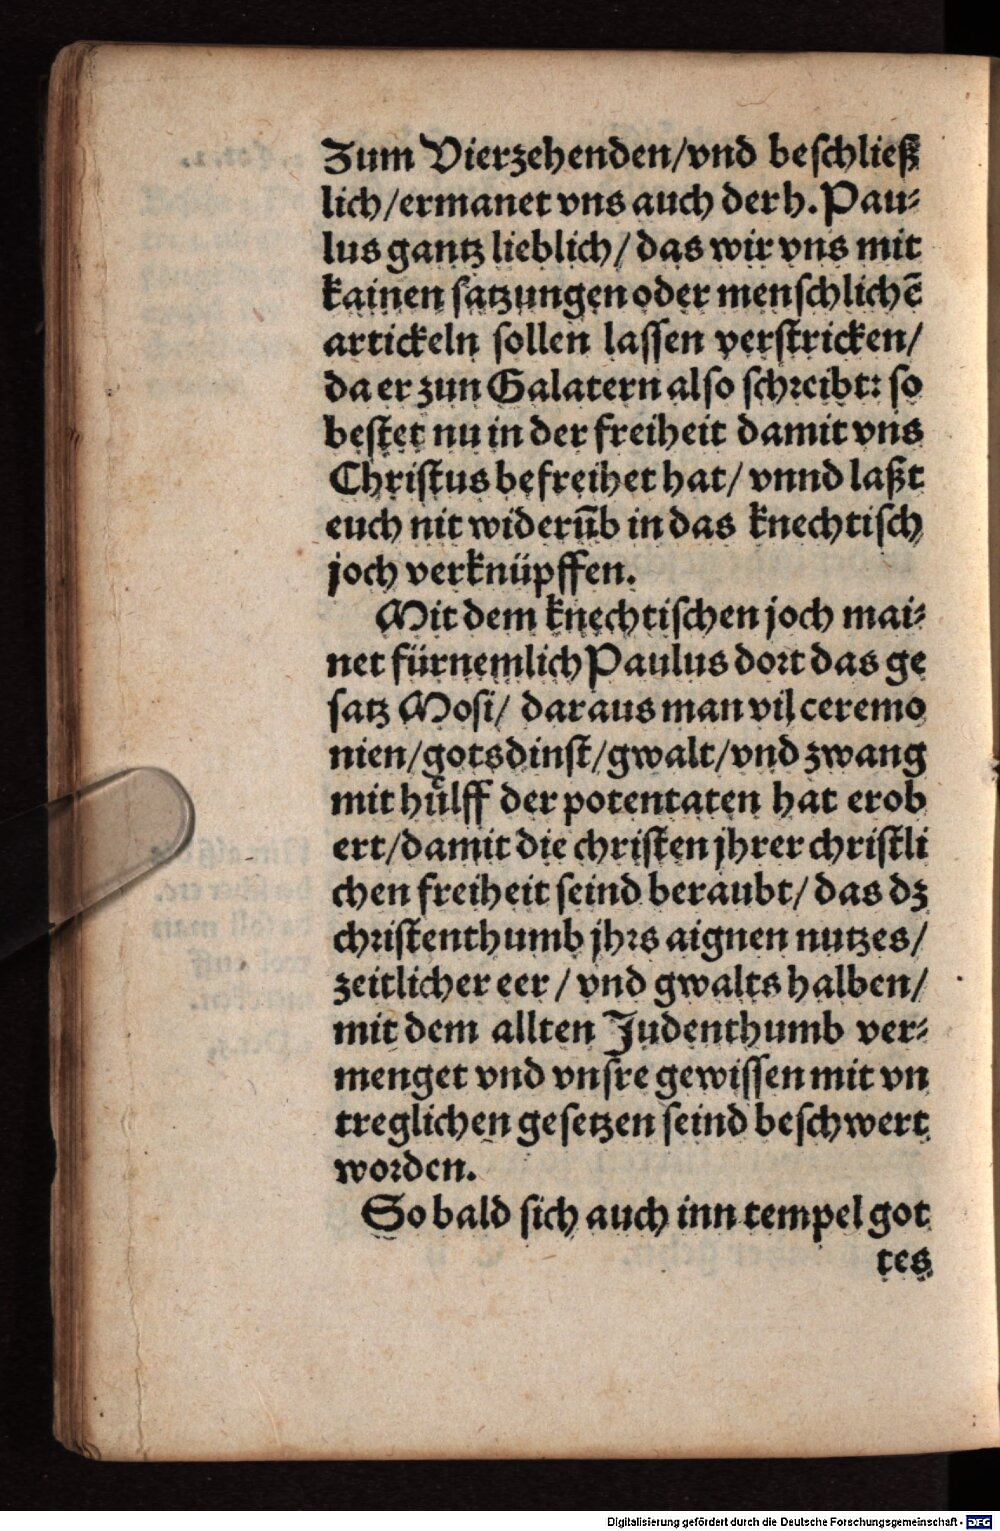 Zum Vierzehenden/vnd beſchließ
lich/ermanet vns auch der h. Pau⸗
lus gantz lieblich/ das wir vns mit
kainen ſatzungen oder menſchlichē
artickeln ſollen laſſen verſtricken/
da er zun Galatern alſo ſchꝛeibt: ſo
beſtet nu in der freiheit damit vns
Chriſtus befreihet hat/ vnnd laßt
euch nit widerūb in das knechtiſch
joch verknüpffen.
Mit dem knechtiſchen joch mai⸗
net fürnemlich Paulus doꝛt das ge
ſatz Moſi/ daraus man vil ceremo
nien/gotsdinſt/gwalt/vnd zwang
mit hülff der potentaten hat erob
ert/damit die chriſten jhrer chriſtli
chen freiheit ſeind beraubt/ das dz
chꝛiſtenthumb jhꝛs aignen nutzes/
zeitlicher eer / vnd gwalts halben/
mit dem allten Judenthumb ver⸗
menget vnd vnſre gewiſſen mit vn
treglichen geſetzen ſeind beſchwert
woꝛden.
So bald ſich auch inn tempel got
tes
Digitalisierung gefördert durch die Deutsche Forschungsgemeinschaft - DFG